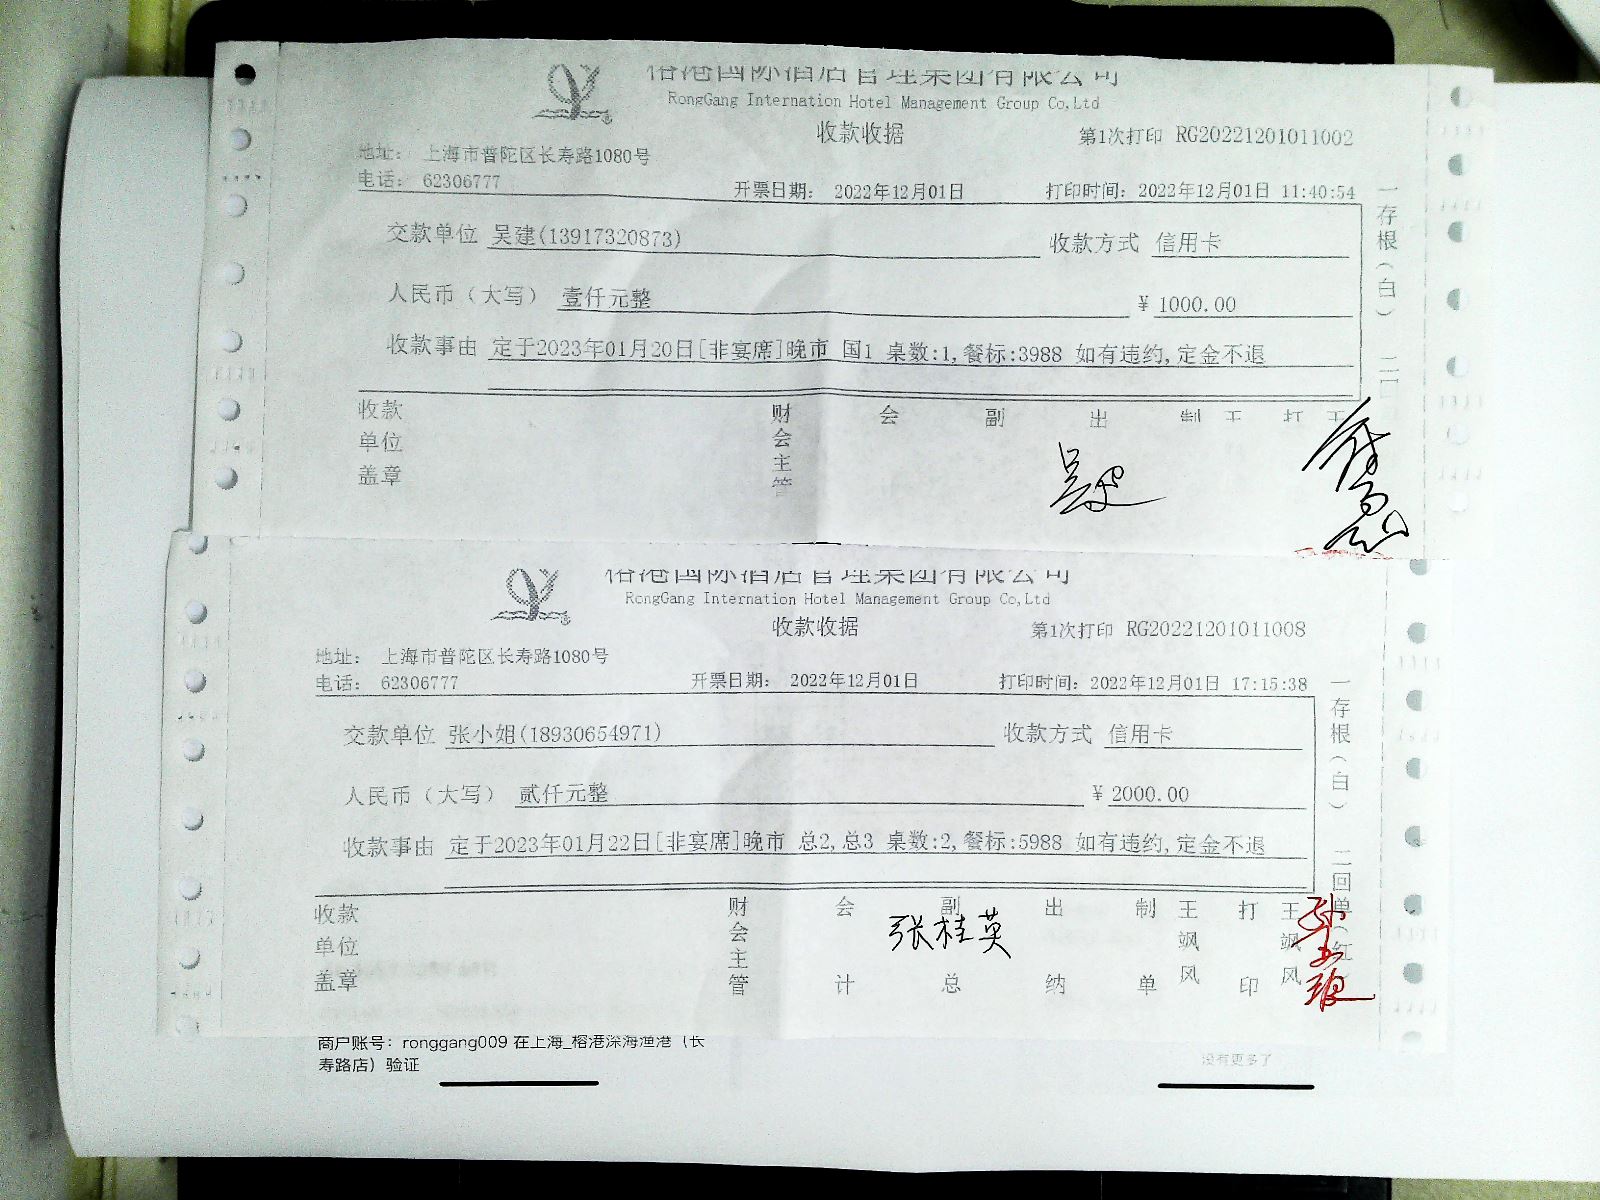 榕港国际酒店管理集团有限公司
RongGang Internation Hotel Management Group Co,Ltd
收款收据 第1次打印 RG20221201011002
地址： 上海市普陀区长寿路1080号
电话： 62306777 开票日期： 2022年12月01日 打印时间：2022年12月01日 11:40:54
交款单位 吴建(13917320873) 收款方式 信用卡
人民币（大写） 壹仟元整 ¥ 1000.00
收款事由 定于2023年01月20日[非宴席]晚市 国1 桌数:1,餐标:3988 如有违约,定金不退
一存根(白) 二
收款单位盖章 财会主管 会 副 出 制 王 打 王
榕港国际酒店管理集团有限公司
RongGang Internation Hotel Management Group Co,Ltd
收款收据 第1次打印 RG20221201011008
地址： 上海市普陀区长寿路1080号
电话： 62306777 开票日期： 2022年12月01日 打印时间：2022年12月01日 17:15:38
交款单位 张小姐(18930654971) 收款方式 信用卡
人民币（大写） 贰仟元整 ¥ 2000.00
收款事由 定于2023年01月22日[非宴席]晚市 总2,总3 桌数:2,餐标:5988 如有违约,定金不退
一存根(白) 二回单(红)
收款单位盖章 财会主管 会计 副总 出纳 制单 王飒风 打印 王飒风
张桂英
商户账号：ronggang009 在上海_榕港深海渔港（长
寿路店）验证
没有更多了